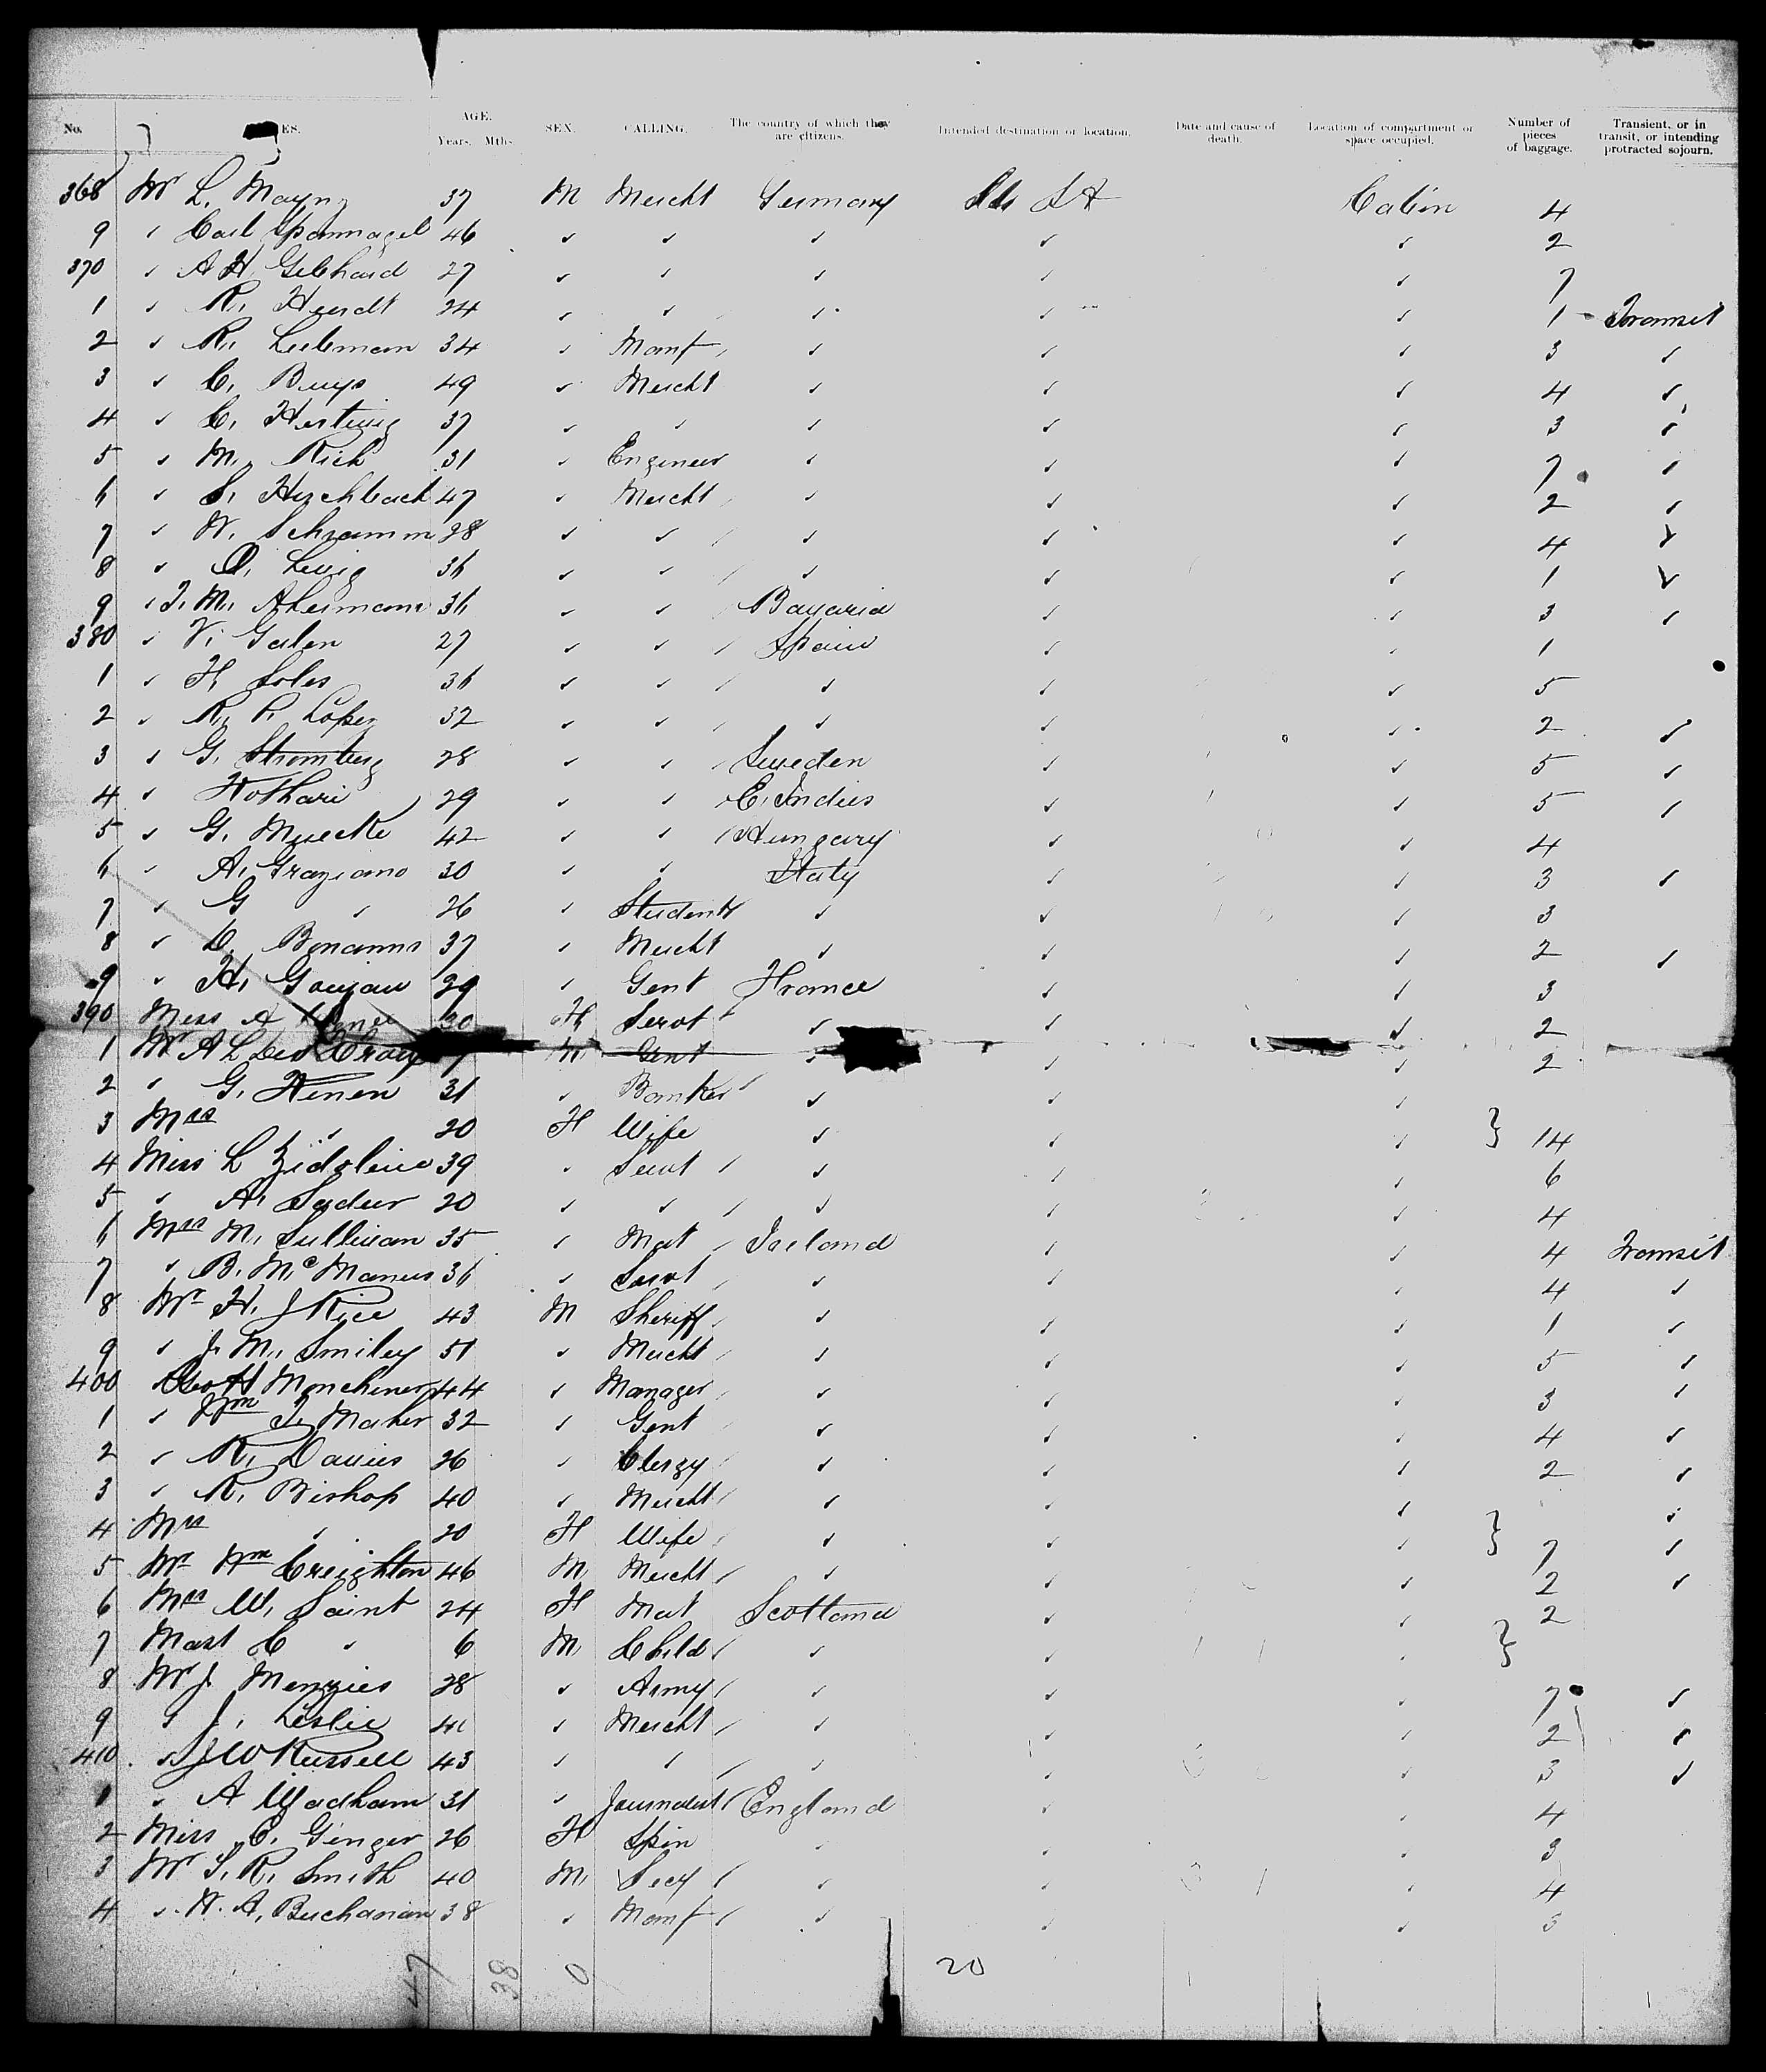 No. NAMES. AGE. Years. Mths. SEX. CALLING. The country of which they are citizens. Intended destination or location. Date and cause of death. Location of compartment or space occupied. Number of pieces of baggage. Transient, or in transit, or intending protracted sojourn.
368 Mr L. Mayny 37 M Mercht Germany Cabin 4
9 " Carl Spannagel 46 " " " " " 2
370 " A H Gebhard 27 " " " " " 7
1 " R. Hundt 24 " " " " " 1 Transit
2 " R. Liebmann 34 " Manf " " " 3 "
3 " C. Buys 49 " Mercht " " " 4 "
4 " C. Hertwig 37 " " " " " 3 "
5 " M. Rich 31 " Engineer " " " 7 "
6 " S. Hirchbach 47 " Mercht " " " 2 "
7 " W. Schramm 28 " " " " " 4 "
8 " O. Levig 36 " " " " " 1 "
9 " J. M. Akermann 36 " " Bavaria " " 3 "
380 " V. Galen 27 " " Spain " " 1
1 " F. Soles 36 " " " " " 5
2 " R. P. Lopez 32 " " " " " 2 "
3 " G. Stromberg 28 " " Sweden " " 5 "
4 " Kothari 29 " " E. Indies " " 5 "
5 " G. Muecke 42 " " Hungary " " 4
6 " A. Graziano 30 " " Italy " " 3 "
7 " G " 26 " Student " " " 3
8 " D. Bonanno 37 " Mercht " " " 2 "
9 " H. Goujau 29 " Gent France " " 3
390 Miss A 30 F Servt " " " 2
1 Mr A L M Gent " " " 2
2 " G. Henen 31 " Banker " " "
3 Mrs " 20 F Wife " " " } 14
4 Miss L Zidoline 39 " Servt " " " 6
5 " A. Sadur 20 " " " " " 4
6 Mrs M. Sullivan 35 " Mat Ireland " " 4 Transit
7 " B. McManus 36 " Servt " " " 4 "
8 Mr H. J Rice 43 M Sheriff " " " 1 "
9 " J. M. Smiley 51 " Mercht " " " 5 "
400 Geo H Monchener 44 " Manager " " " 3 "
1 " Wm J. Maher 32 " Gent " " " 4 "
2 " R. Davies 26 " Clergy " " " 2 "
3 " R. Bishop 40 " Mercht " " " "
4 Mrs " 20 F Wife " " " } 7 "
5 Mr Wm Creighton 46 M Mercht " " " 2 "
6 Mrs W. Saint 24 F Mat Scotland " " 2
7 Mast C " 6 M Child " " " }
8 Mr J Menzies 28 " Army " " " 7 "
9 " J. Leslie 41 " Mercht " " " 2 "
410 " J W Russell 43 " " " " " 3 "
1 " A Wadham 31 " Journalist England " " 4
2 Miss C. Ginger 26 F Spin " " " 3
3 Mr S. R. Smith 40 M Secy " " " 4
4 " H. A. Buchanan 38 " Manf " " " 3
47 38 0 20